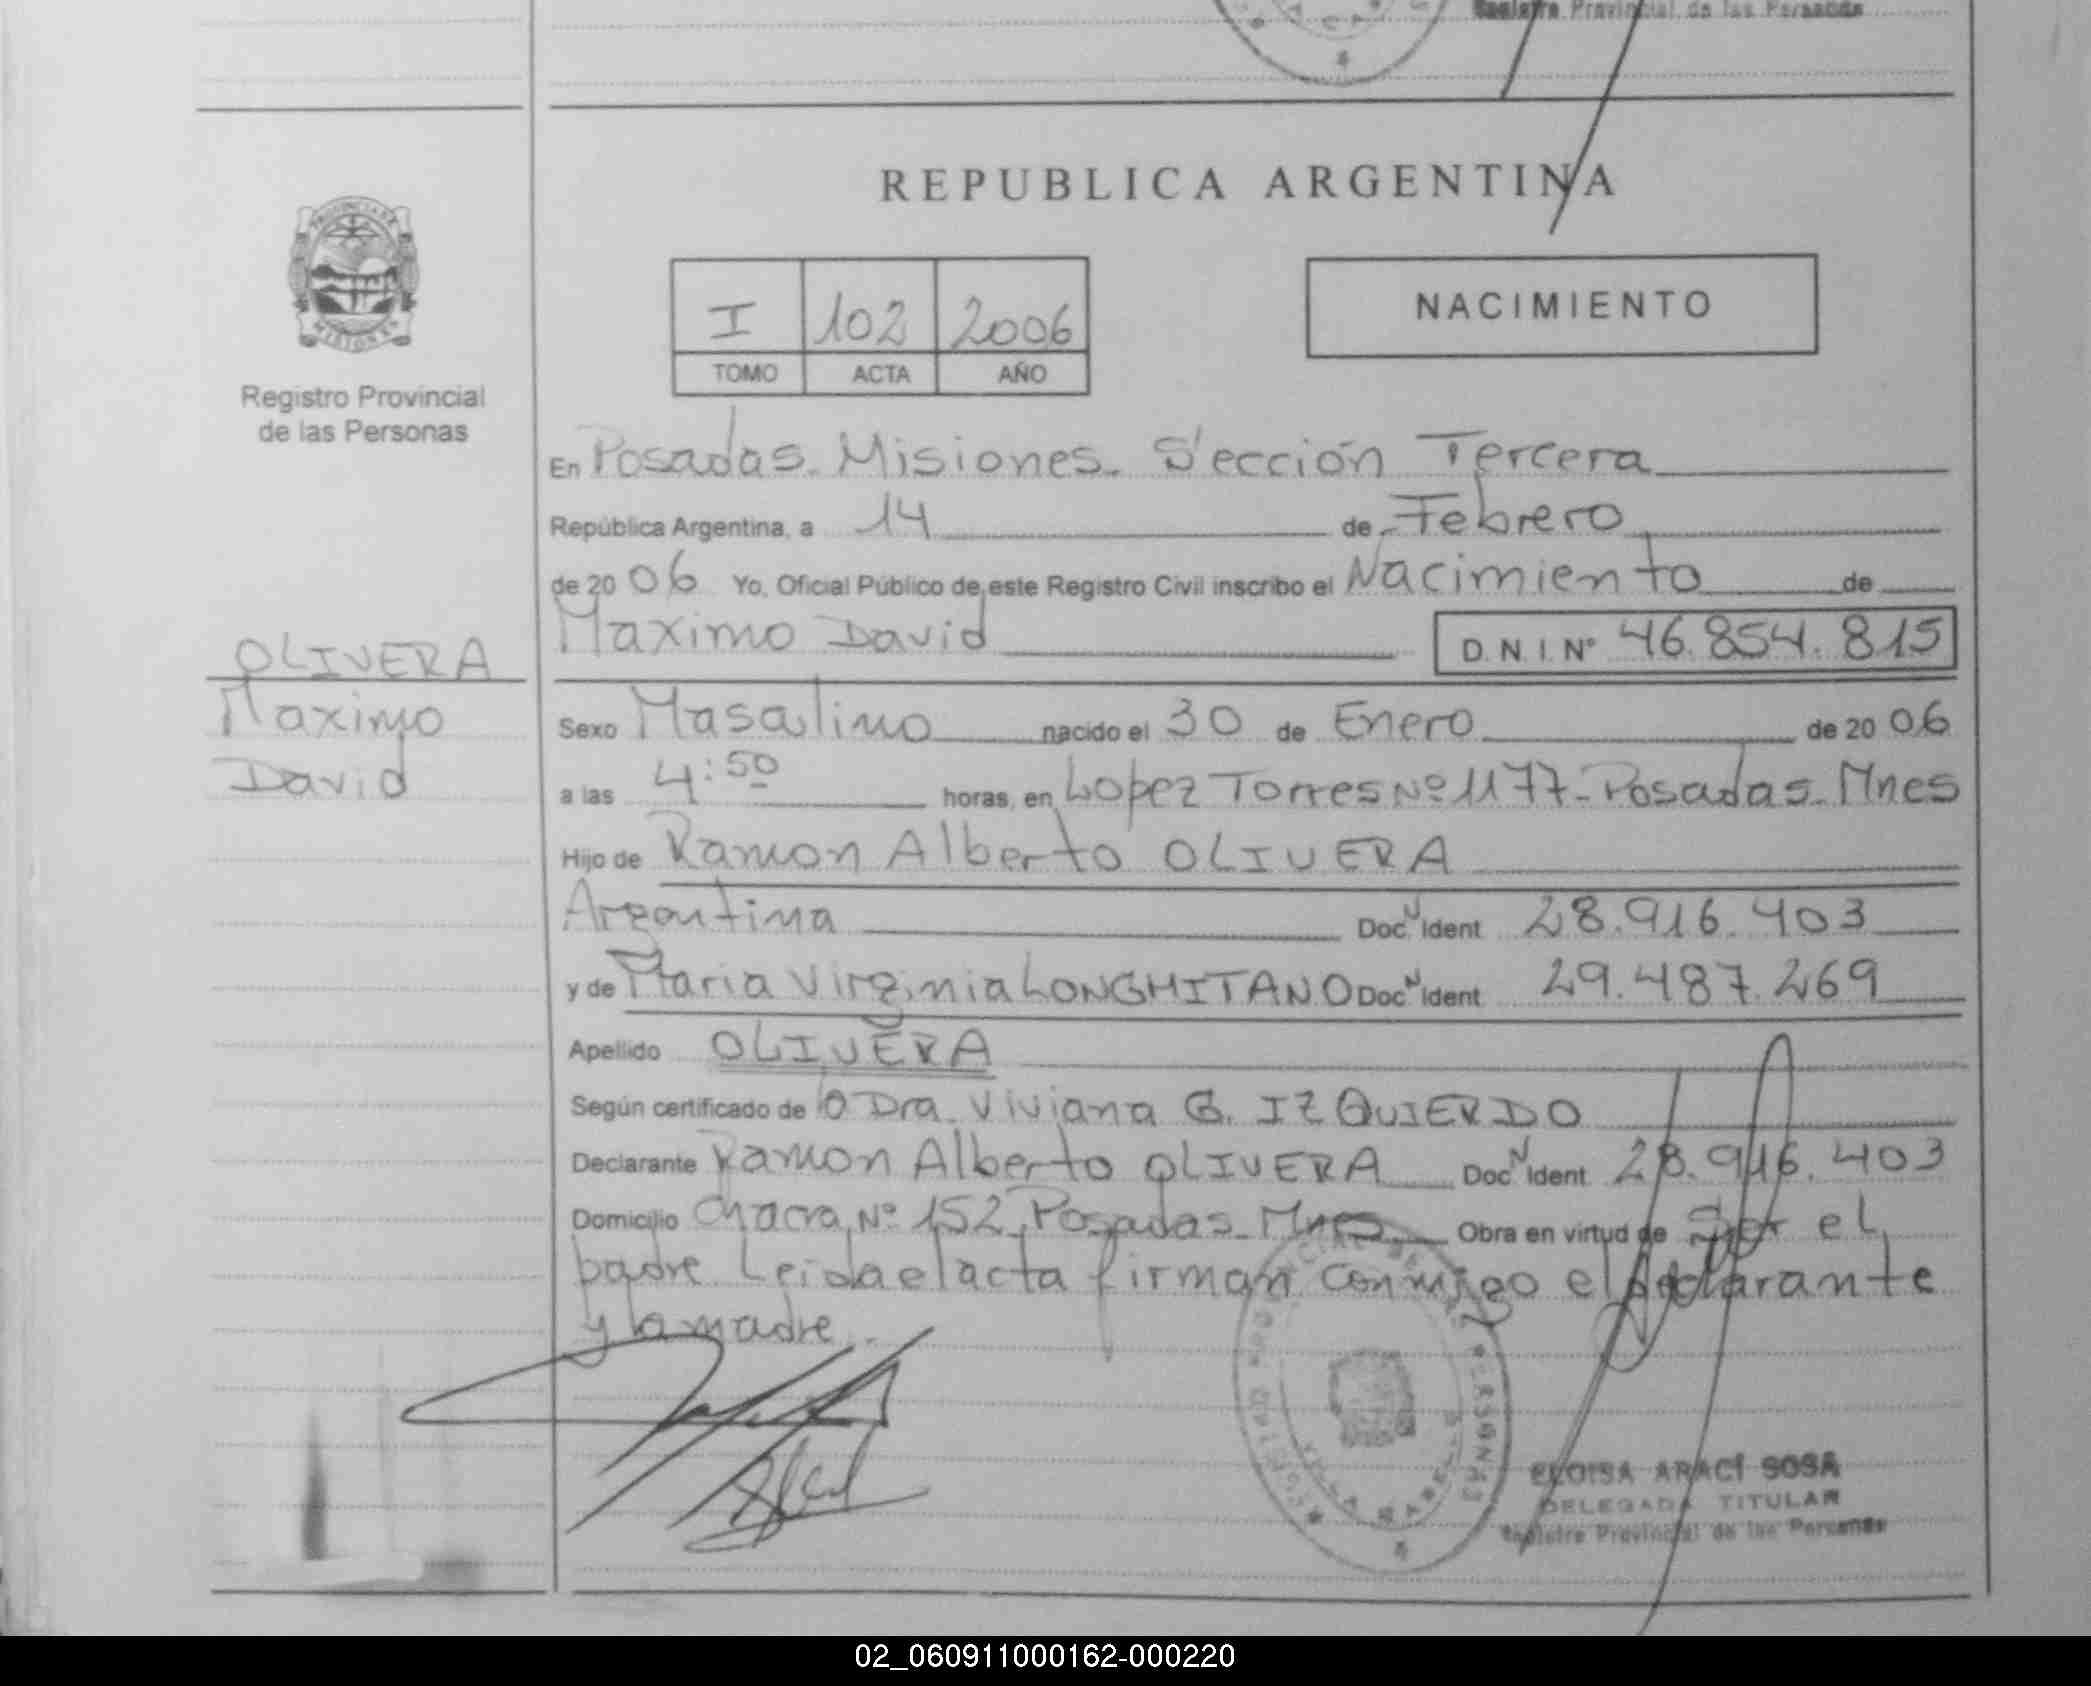 Registro Provincial de las Personas
REPUBLICA ARGENTINA
PROVINCIA DE
MISIONES
Registro Provincial
de las Personas
I 102 2006
TOMO ACTA AÑO
NACIMIENTO
En Posadas. Misiones. Sección Tercera
República Argentina, a 14 de Febrero
de 20 06 Yo, Oficial Público de este Registro Civil inscribo el Nacimiento de
Maximo David D.N.I. Nº 46.854.815
OLIVERA
Maximo
David
Sexo Masculino nacido el 30 de Enero de 20 06
a las 4:50 horas, en Lopez Torres Nº 1177-Posadas-Mnes
Hijo de Ramon Alberto OLIVERA
Argentina Doc. N Ident 28.916.403
y de Maria Virginia LONGHITANO Doc. N Ident 29.487.269
Apellido OLIVERA
Según certificado de Dra. Viviana G. IZQUIERDO
Declarante Ramon Alberto OLIVERA Doc. N Ident 28.916.403
Domicilio Chacra Nº 152 Posadas-Mnes. Obra en virtud de Ser el
padre. Leida el acta firman conmigo el declarante
y la madre.
ELOISA ARACI SOSA
DELEGADA TITULAR
Registro Provincial de las Personas
02_060911000162-000220